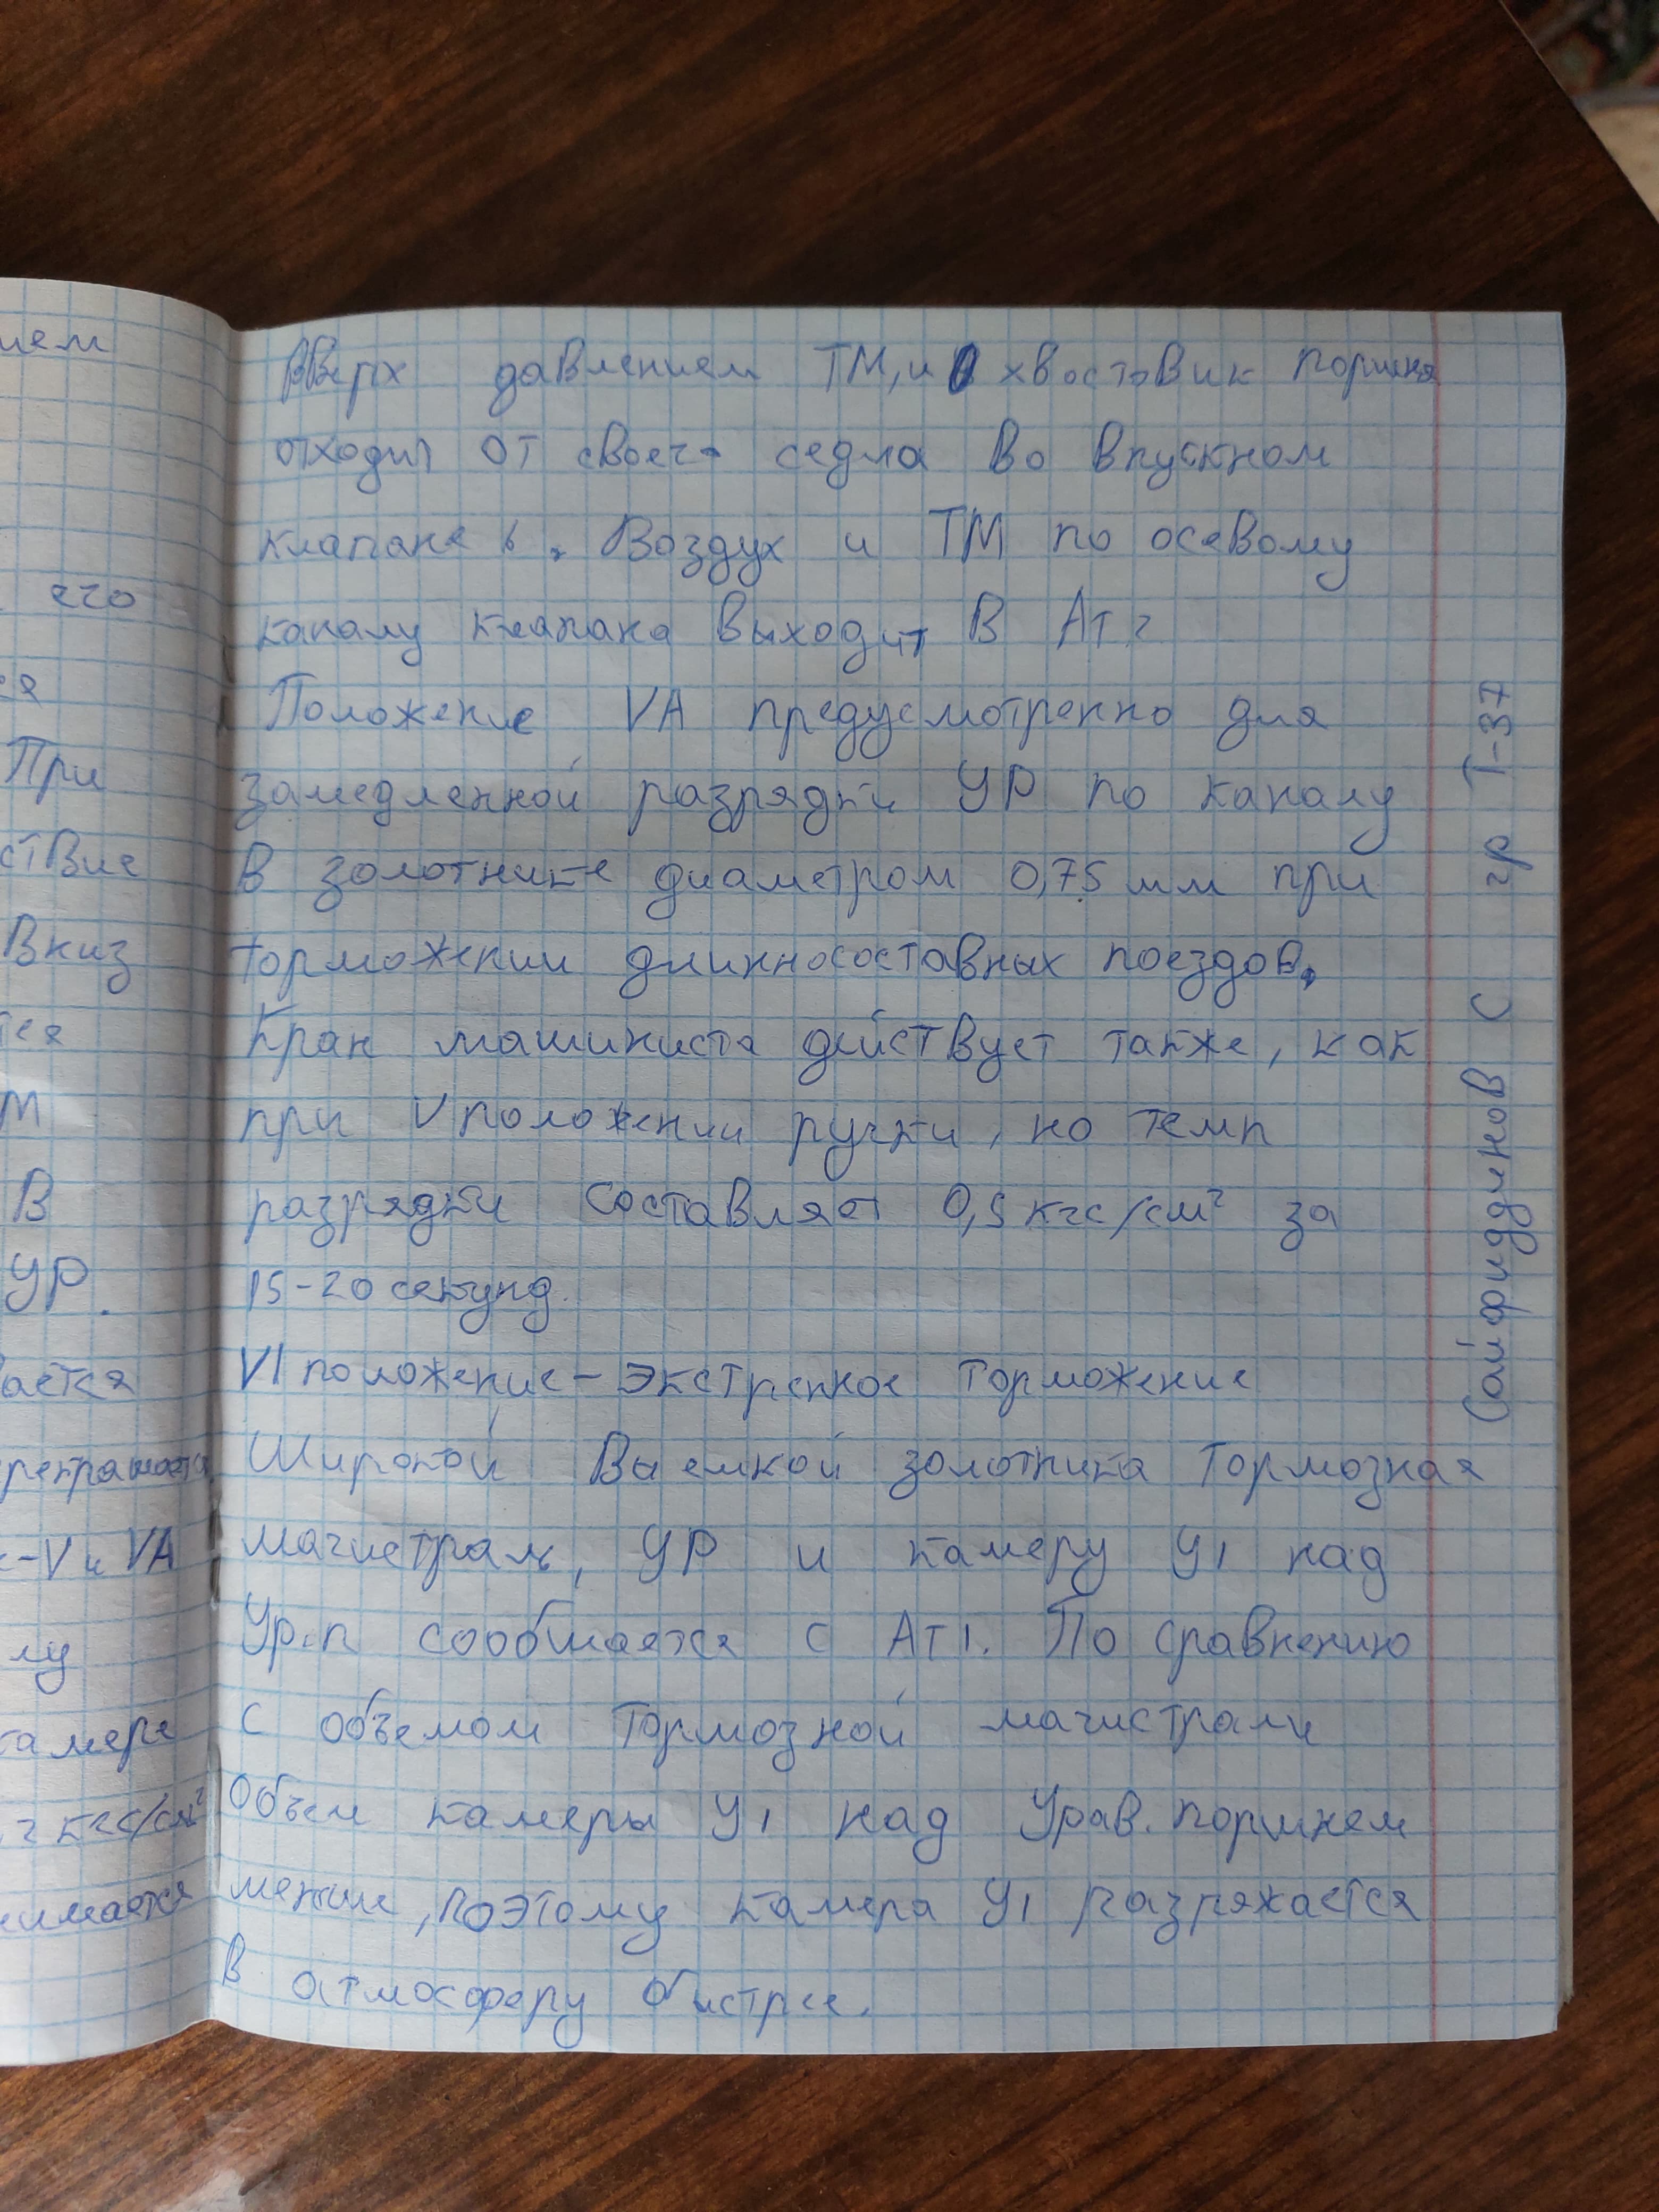 ием
его
ся
При
ствие
Вниз
тся
М
В
УР.
вается
рекращается
-V и VA
лу
камере
,2 кгс/см²
нимается
вверх давлением ТМ, и хвостовик поршня
отходит от своего седла во впускном
клапане 6. Воздух и ТМ по осевому
каналу клапана выходит в Ат2
Положение VA предусмотренно для
замедленной разрядки УР по каналу
в золотнике диаметром 0,75 мм при
торможении длинносоставных поездов.
Кран машиниста действует также, как
при V положении ручки, но темп
разрядки составляет 0,5 кгс/см² за
15-20 секунд.
VI положение - экстренное торможение
Широкой выемкой золотника тормозная
магистраль, УР и камеру У1 над
Ур.п сообщается с Ат1. По сравнению
с объемом тормозной магистрали
объем камеры У1 над Урав. поршнем
меньше, поэтому камера У1 разряжается
в атмосферу быстрее.
Сайфиддинов С гр Т-37